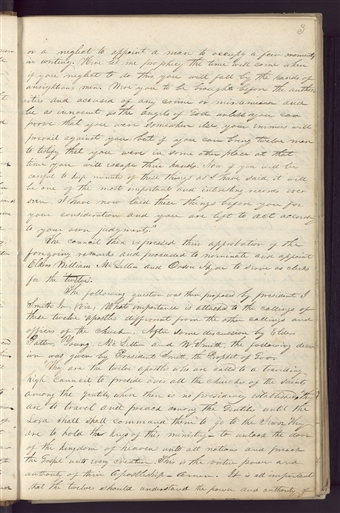 3
or a neglect to appoint a man to occupy a few moments
in writing. Here let me prophecy the time will come when
if you neglect to do this you will fall by the hands of
unrighteous men. Were you to be brought before the author-
ities and accused of any crime or misdemeanor and
be as innocent as the angels of God unless you can
prove that you were somewhere else your enemies will
prevail against you: but if you can bring twelve men
to testify that you were in some other place at that
time you will escape their hands. Now if you will be
careful to keep minutes of these things as I have said it will
be one of the most important and interesting records ever
seen. I have now laid these things before you for
your consideration and you are left to act according
to your own judgments."
The council then expressed their approbation of the
foregoing remarks and proceeded to nominate and appoint
Elders William McLellin and Orson Hyde to serve as clerks
for the twelve.
The following question was then proposed by president J
Smith Jun (viz) What importance is attached to the callings of
these twelve apostles different from the other callings and
offices of the church. After some discussion by Elders
Patten, Young, McLellin and W. Smith, the following decis-
ion was given by President Smith the Prophet of God
They are the twelve apostles who are called to a travelling
high council to preside over all the churches of the Saints
among the gentiles where there is no presidency established. They
are to travel and preach among the Gentiles until the
Lord shall shall command them to go to the Jews. They
are to hold the keys of this ministry to unlock the door
of the kingdom of heaven unto all nations and preach
the Gospel unto every creature. This is the virtue power and
authority of their Apostleship — Amen. It is all important
that the twelve should understand the power and authority of